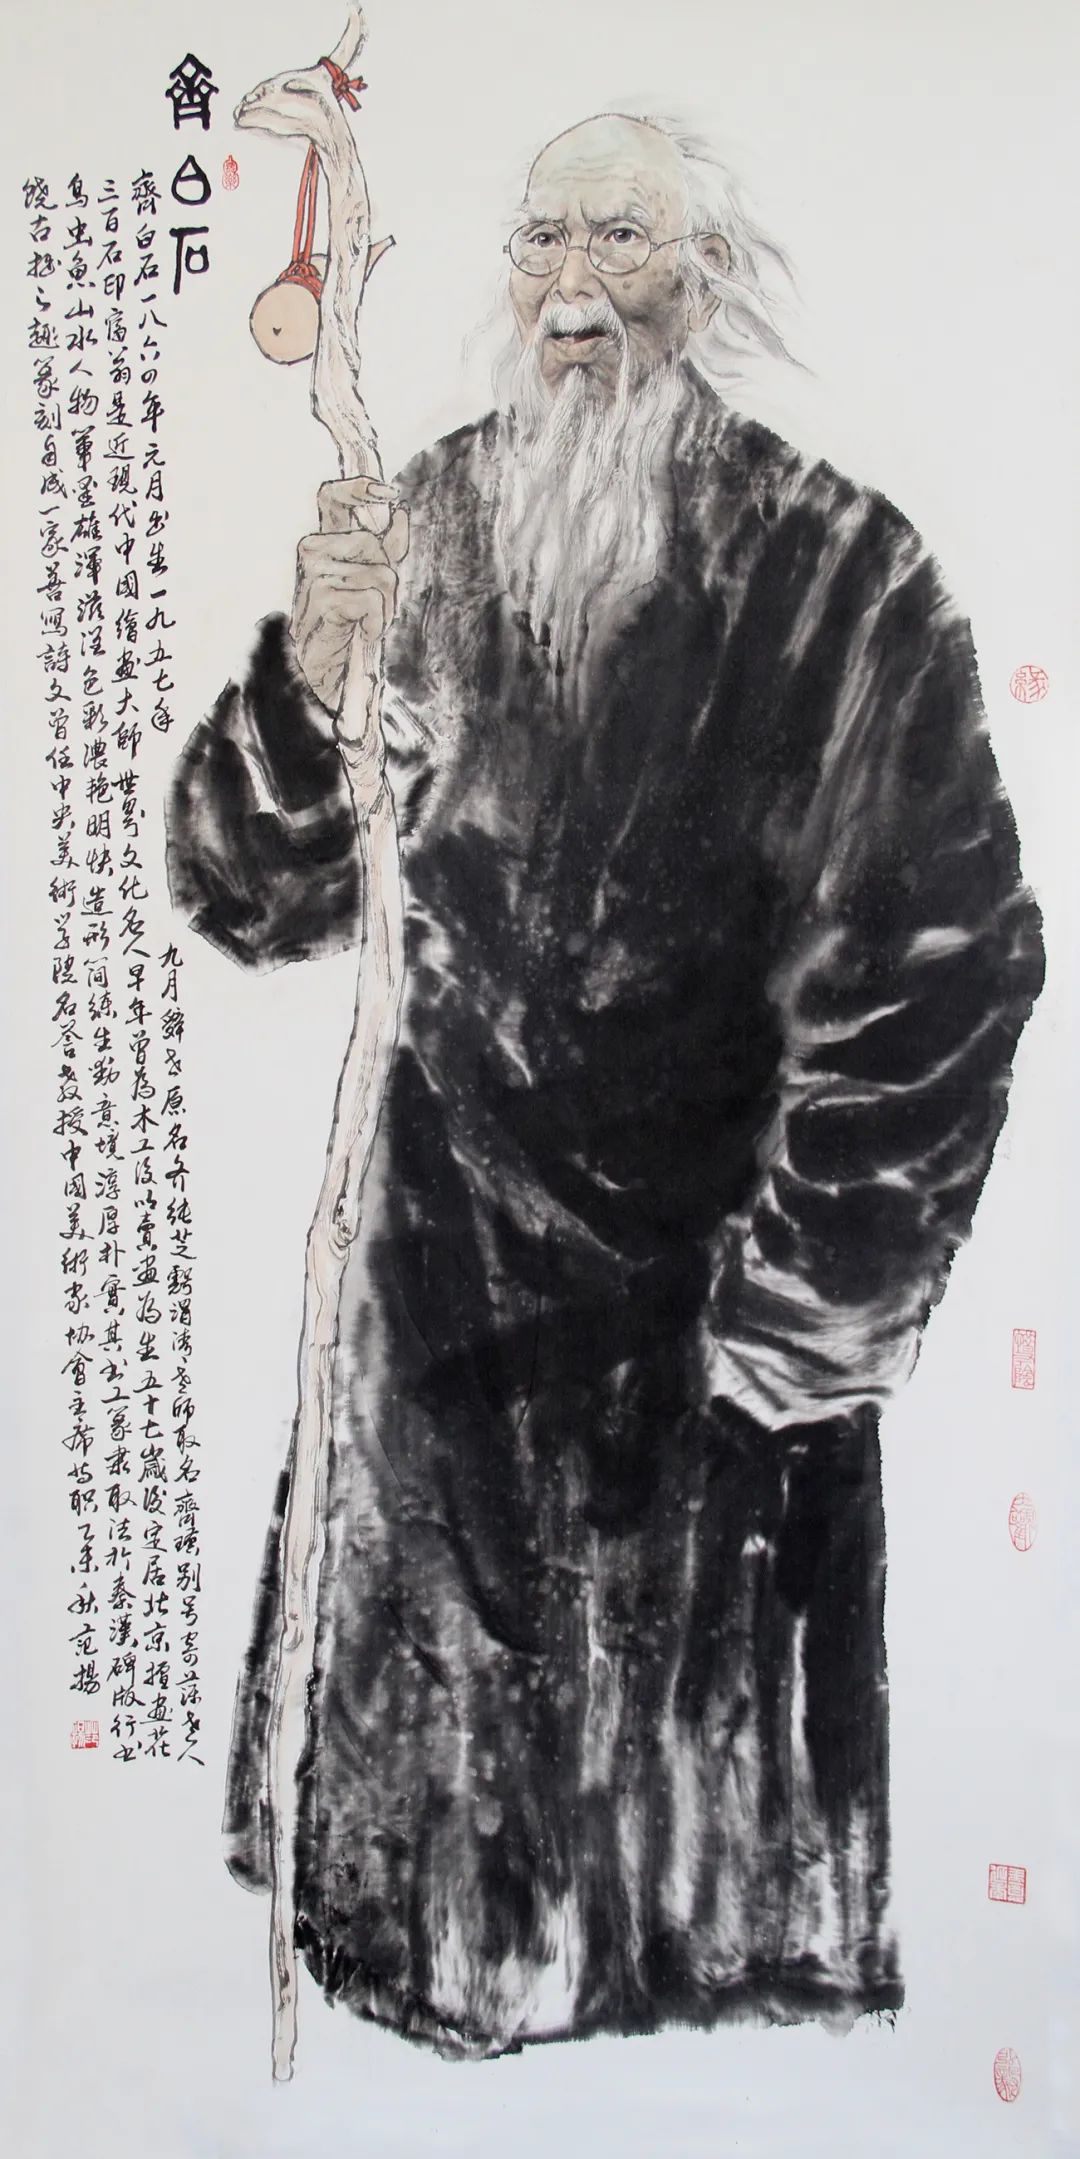 齊白石
齊白石一八六四年元月出生一九五七年九月辭世原名齐純芝號渭清老師取名齊璜别号寄萍老人
三百石印富翁是近現代中國繪畫大師世界文化名人早年曾為木工後以賣畫為生五十七歲後定居北京擅畫花
鳥虫魚山水人物筆墨雄渾滋润色彩濃艳明快造形简練生動意境淳厚朴實其书工篆隶取法於秦漢碑版行书
饒古拙之趣篆刻自成一家善寫詩文曾任中央美術学院名誉教授中國美術家协會主席等职乙未秋范揚